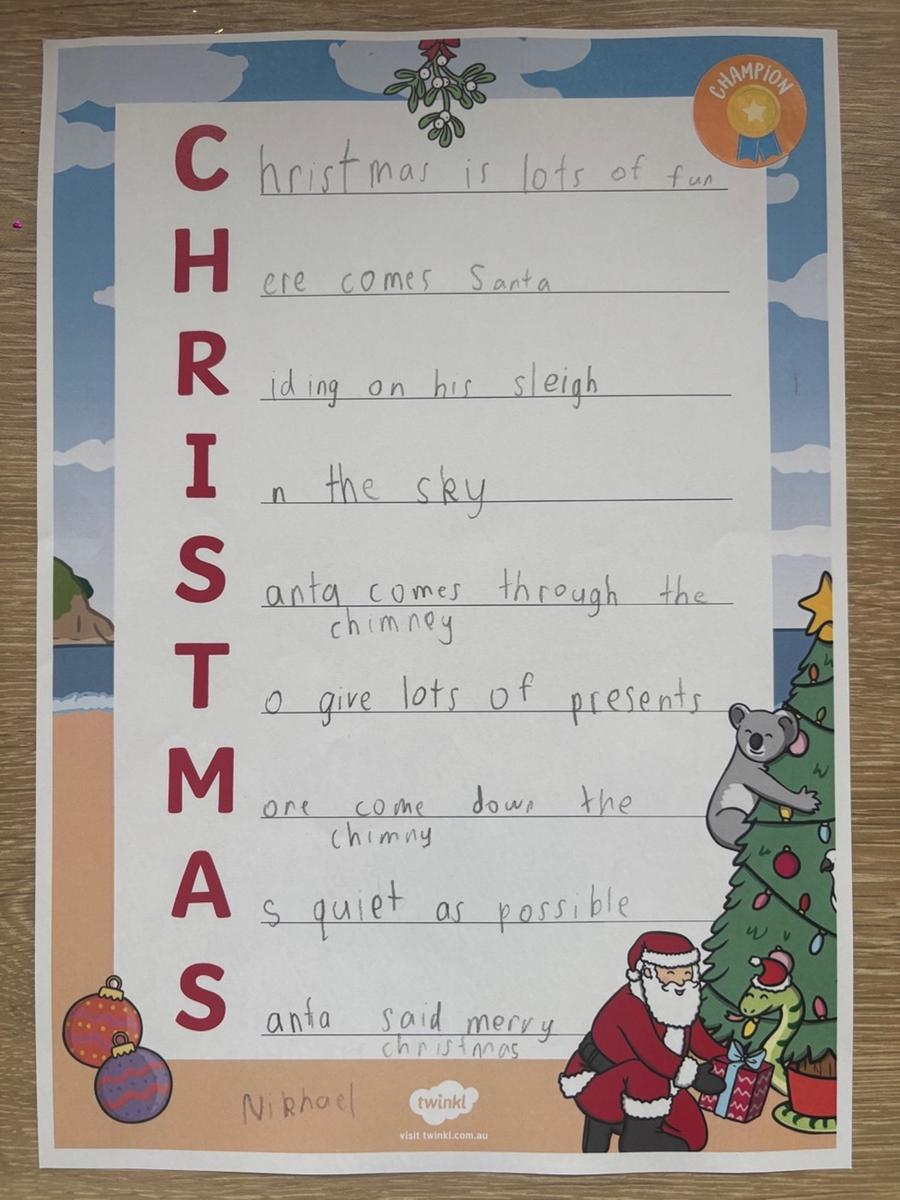 CHAMPION
C hristmas is lots of fun
H ere comes Santa
R iding on his sleigh
I n the sky
S anta comes through the
chimney
T o give lots of presents
M ore come down the
chimny
A s quiet as possible
S anta said merry
christmas
Nikhael
twinkl
visit twinkl.com.au